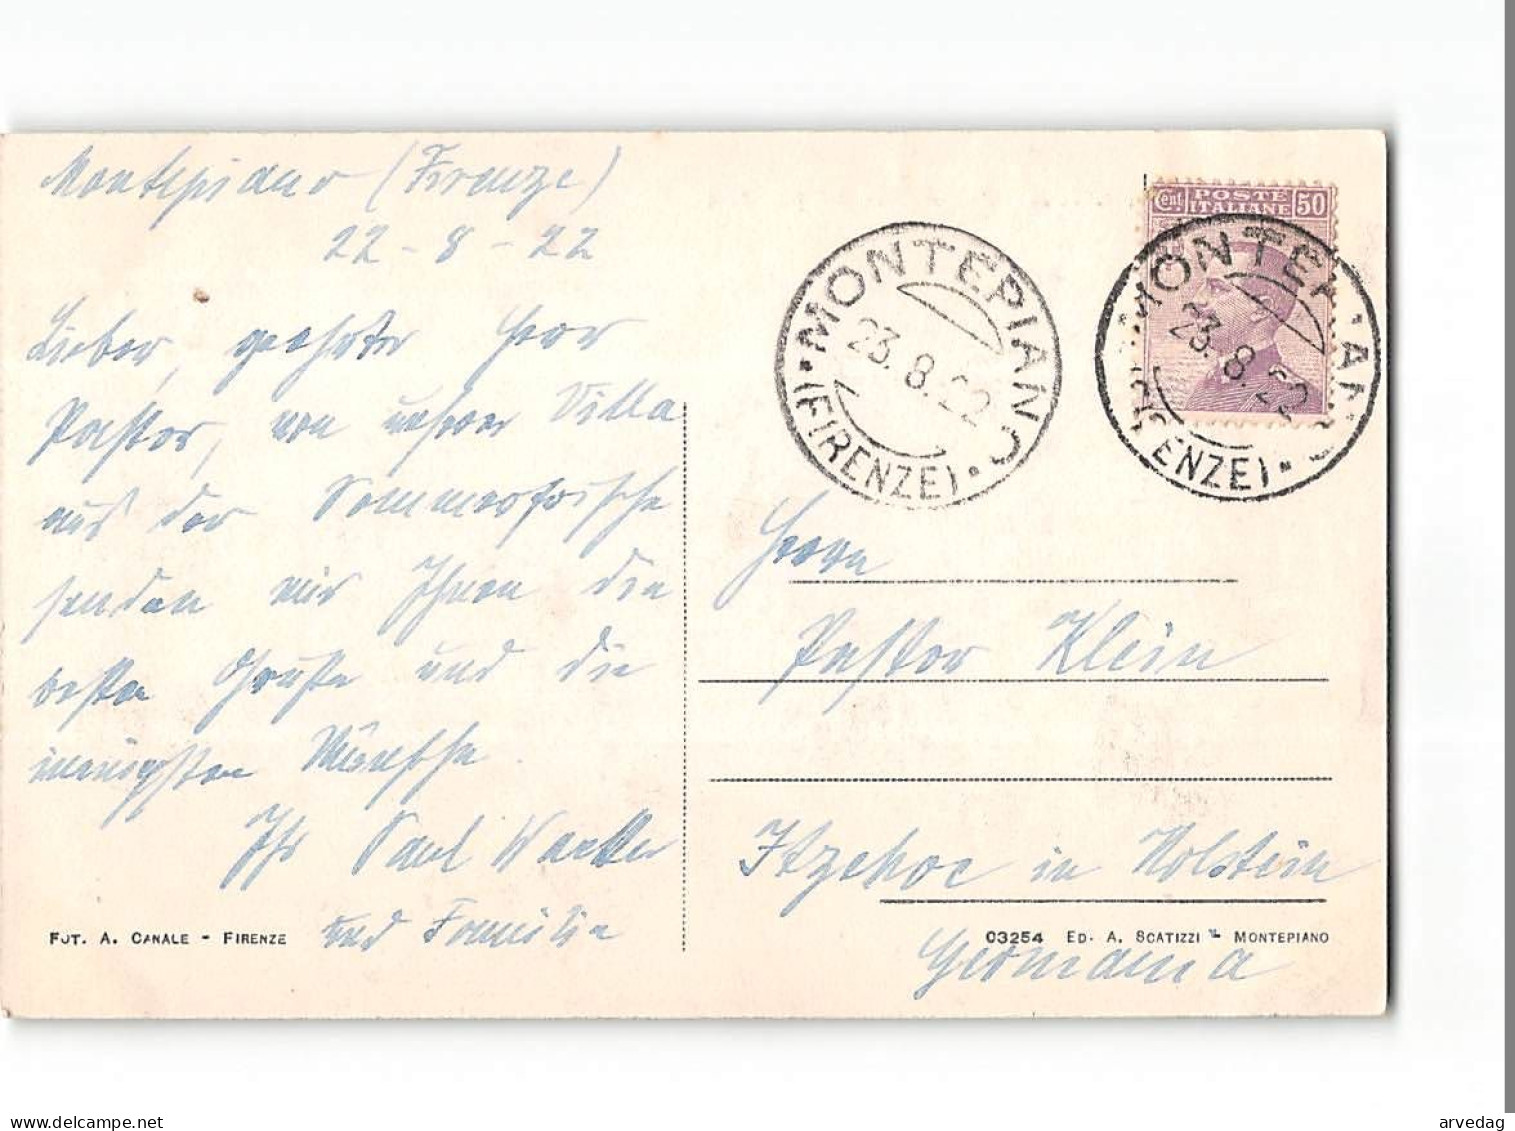 Montepiano (Firenze)
22-8-22
Lieber, geehrter Herr
Pastor, von unserer Villa
aus der Sommerfrische
senden wir Ihnen die
besten Grüße und die
innigsten Wünsche.
Ihr Paul
und Familie
FOT. A. CANALE - FIRENZE
Cent. POSTE ITALIANE 50
MONTEPIANO
23.8.22
(FIRENZE)
MONTEPIANO
23.8.22
(FIRENZE)
Herrn
Pastor Klein
Itzehoe in Holstein
03254 ED. A. SCATIZZI - MONTEPIANO
Germania
delcampe.net
arvedag